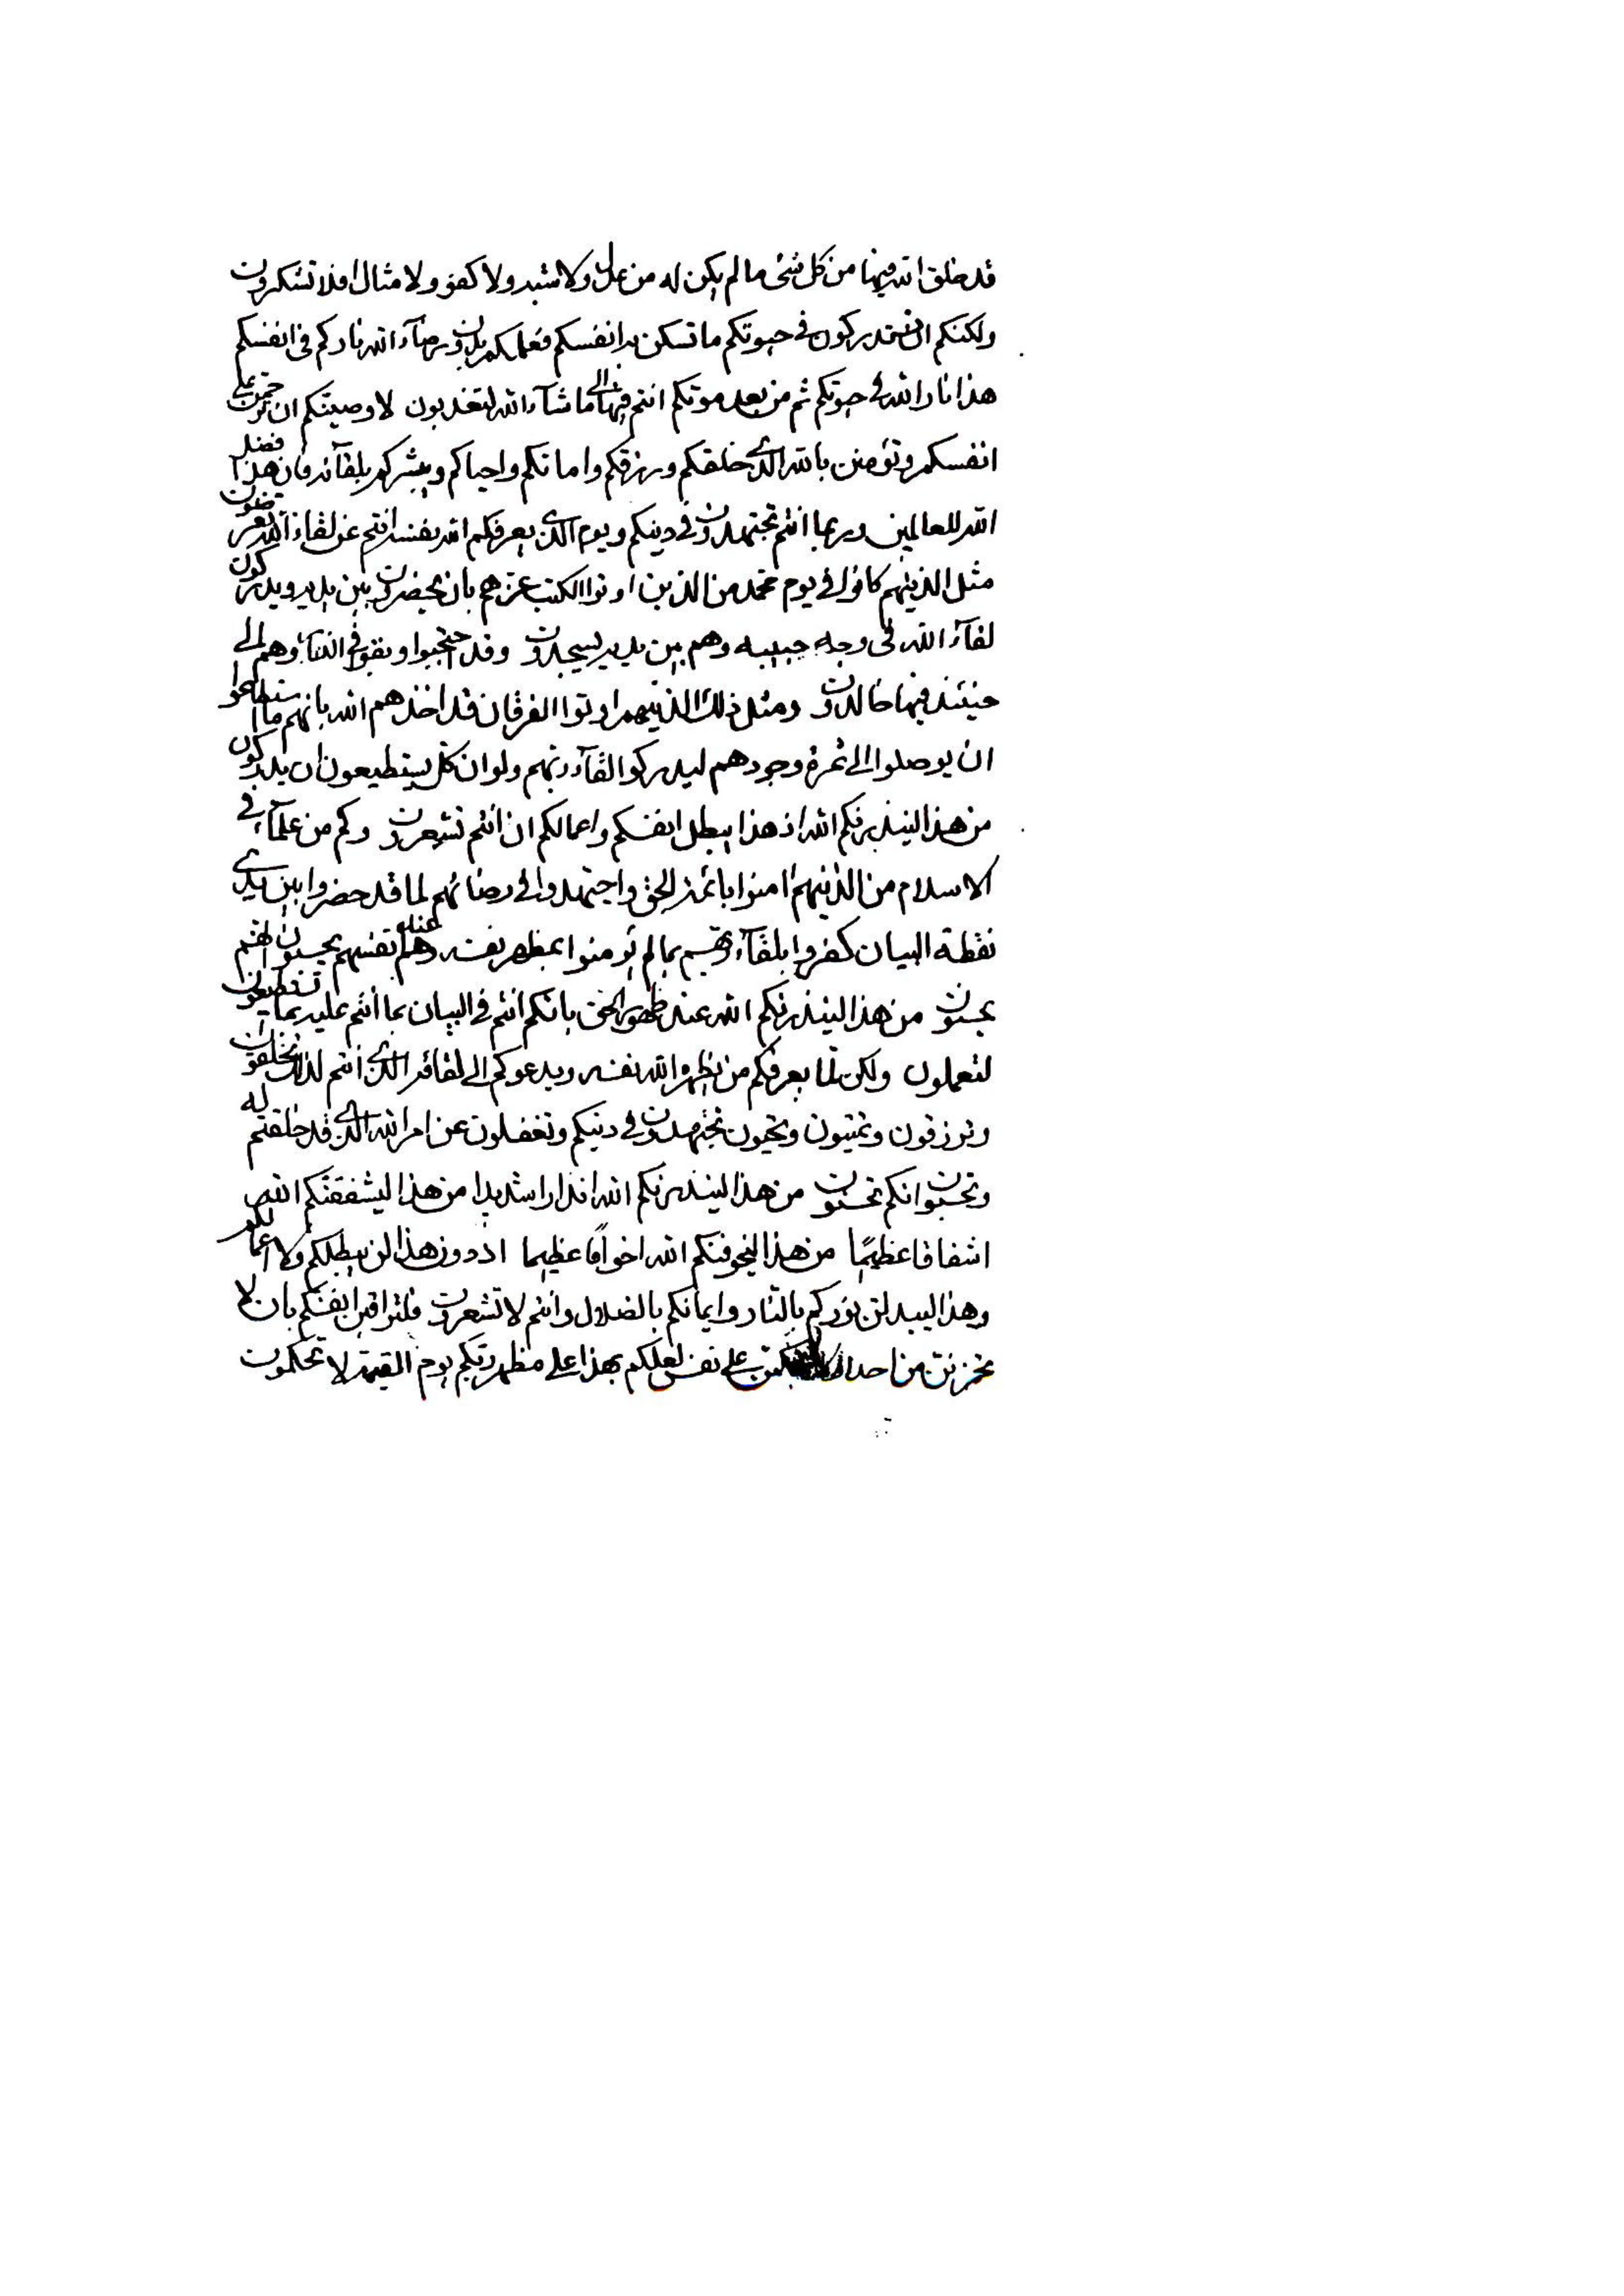 قد خلق الله فيها من كل شئ ما لم يكن له من عدل ولا شبه ولا كفو ولا مثال افلا تشكرون
ولكنكم انتم تدركون في حيوتكم ما تسكن به انفسكم فعملكم بدون رضاء الله ناركم في انفسكم
هذا نار الله في حيوتكم ثم من بعد موتكم انتم فيها الى ما شاء الله لتعذبون لاوصيتكم ان ترحمن على
انفسكم وتؤمنن بالله الذي خلقكم ورزقكم واماتكم واحياكم ويبشركم بلقائه فان هذا فضل
الله للعالمين وربما انتم تجتهدون في دينكم ويوم الذي يعرفكم الله نفسه انتم عن لقاء الله تعرضون
مثل الذينهم كانوا في يوم محمد من الذين اوتوا الكتب عزهم بان يحضرون بين يديه ويدركون
لقاء الله في وجه حبيبه وهم بين يديه يسجدون وقد احتجبوا وبقوا في النار وهم الى
حينئذ فيها خالدون ومثل ذلك الذينهم اوتوا الفرقان قد اخذهم الله بانهم ما استطاعوا
ان يوصلوا الى ثمرة وجودهم ليدركوا لقاء ربهم ولو ان كل يستطيعون ان يدركون
من هذا لينذرنكم الله اذ هذا يبطل انفسكم واعمالكم ان انتم تشعرون وكم من علماء في
الاسلام من الذينهم امنوا بائمة الحق واجتهدوا في رضائهم لما قد حضروا بين يدي
نقطة البيان كفروا بلقاء ربهم بما لم يؤمنوا بمظهر نفسه وهم عند انفسهم يحسبون انهم
يحسنون من هذا لينذرنكم الله عند ظهور الحق بانكم انتم في البيان بما انتم عليه بما تستطيعون
لتعملون ولكن لما يعرفكم من يظهره الله نفسه ويدعوكم الى لقائه الذي انتم لذلك تخلقون
وترزقون وتميتون وتحيون تجتهدون في دينكم وتغفلون عن امر الله الذي قد خلقتم له
وتحسبون انكم تحسنون من هذا لينذرنكم الله انذارا شديدا من هذا ليشفقنكم الله
اشفاقا عظيما من هذا ليخوفنكم الله اخوافا عظيما اذ دون هذا لن يبطلكم ولا اعمالكم
وهذا ليبدلن نوركم بالنار وايمانكم بالضلال وانتم لا تشعرون فلتراقبن انفسكم بان لا
تحزنن من احد على نفس لعلكم بهذا على مظهر ربكم يوم القيمة لا تحكمون